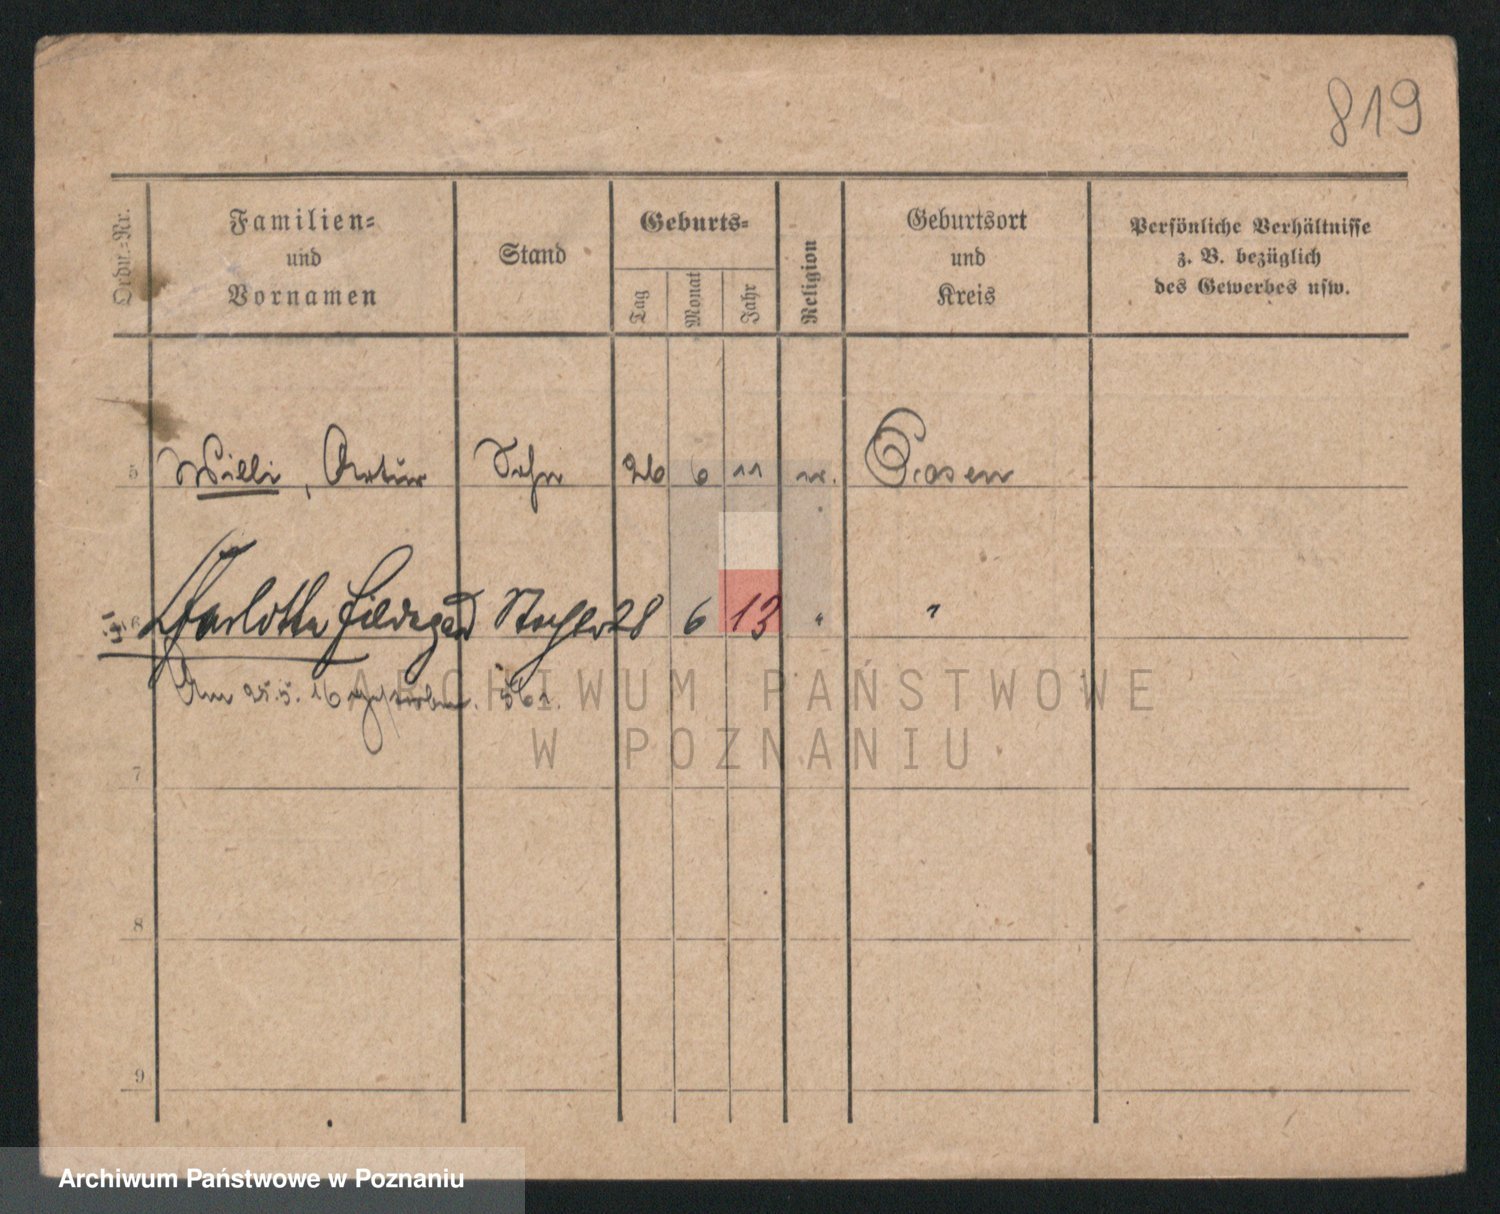 819
Ordn.-Nr.
Familien-
und
Vornamen
Stand
Geburts-
Tag
Monat
Jahr
Religion
Geburtsort
und
Kreis
Persönliche Verhältnisse
z. B. bezüglich
des Gewerbes usw.
5 Willi, Artur Sohn 26 6 11 Posen
6 Charlotte Hildegard Tochter 28 6 13 " "
Am 25.5.16 gestorben.
ARCHIWUM PAŃSTWOWE
W POZNANIU
7
8
9
Archiwum Państwowe w Poznaniu